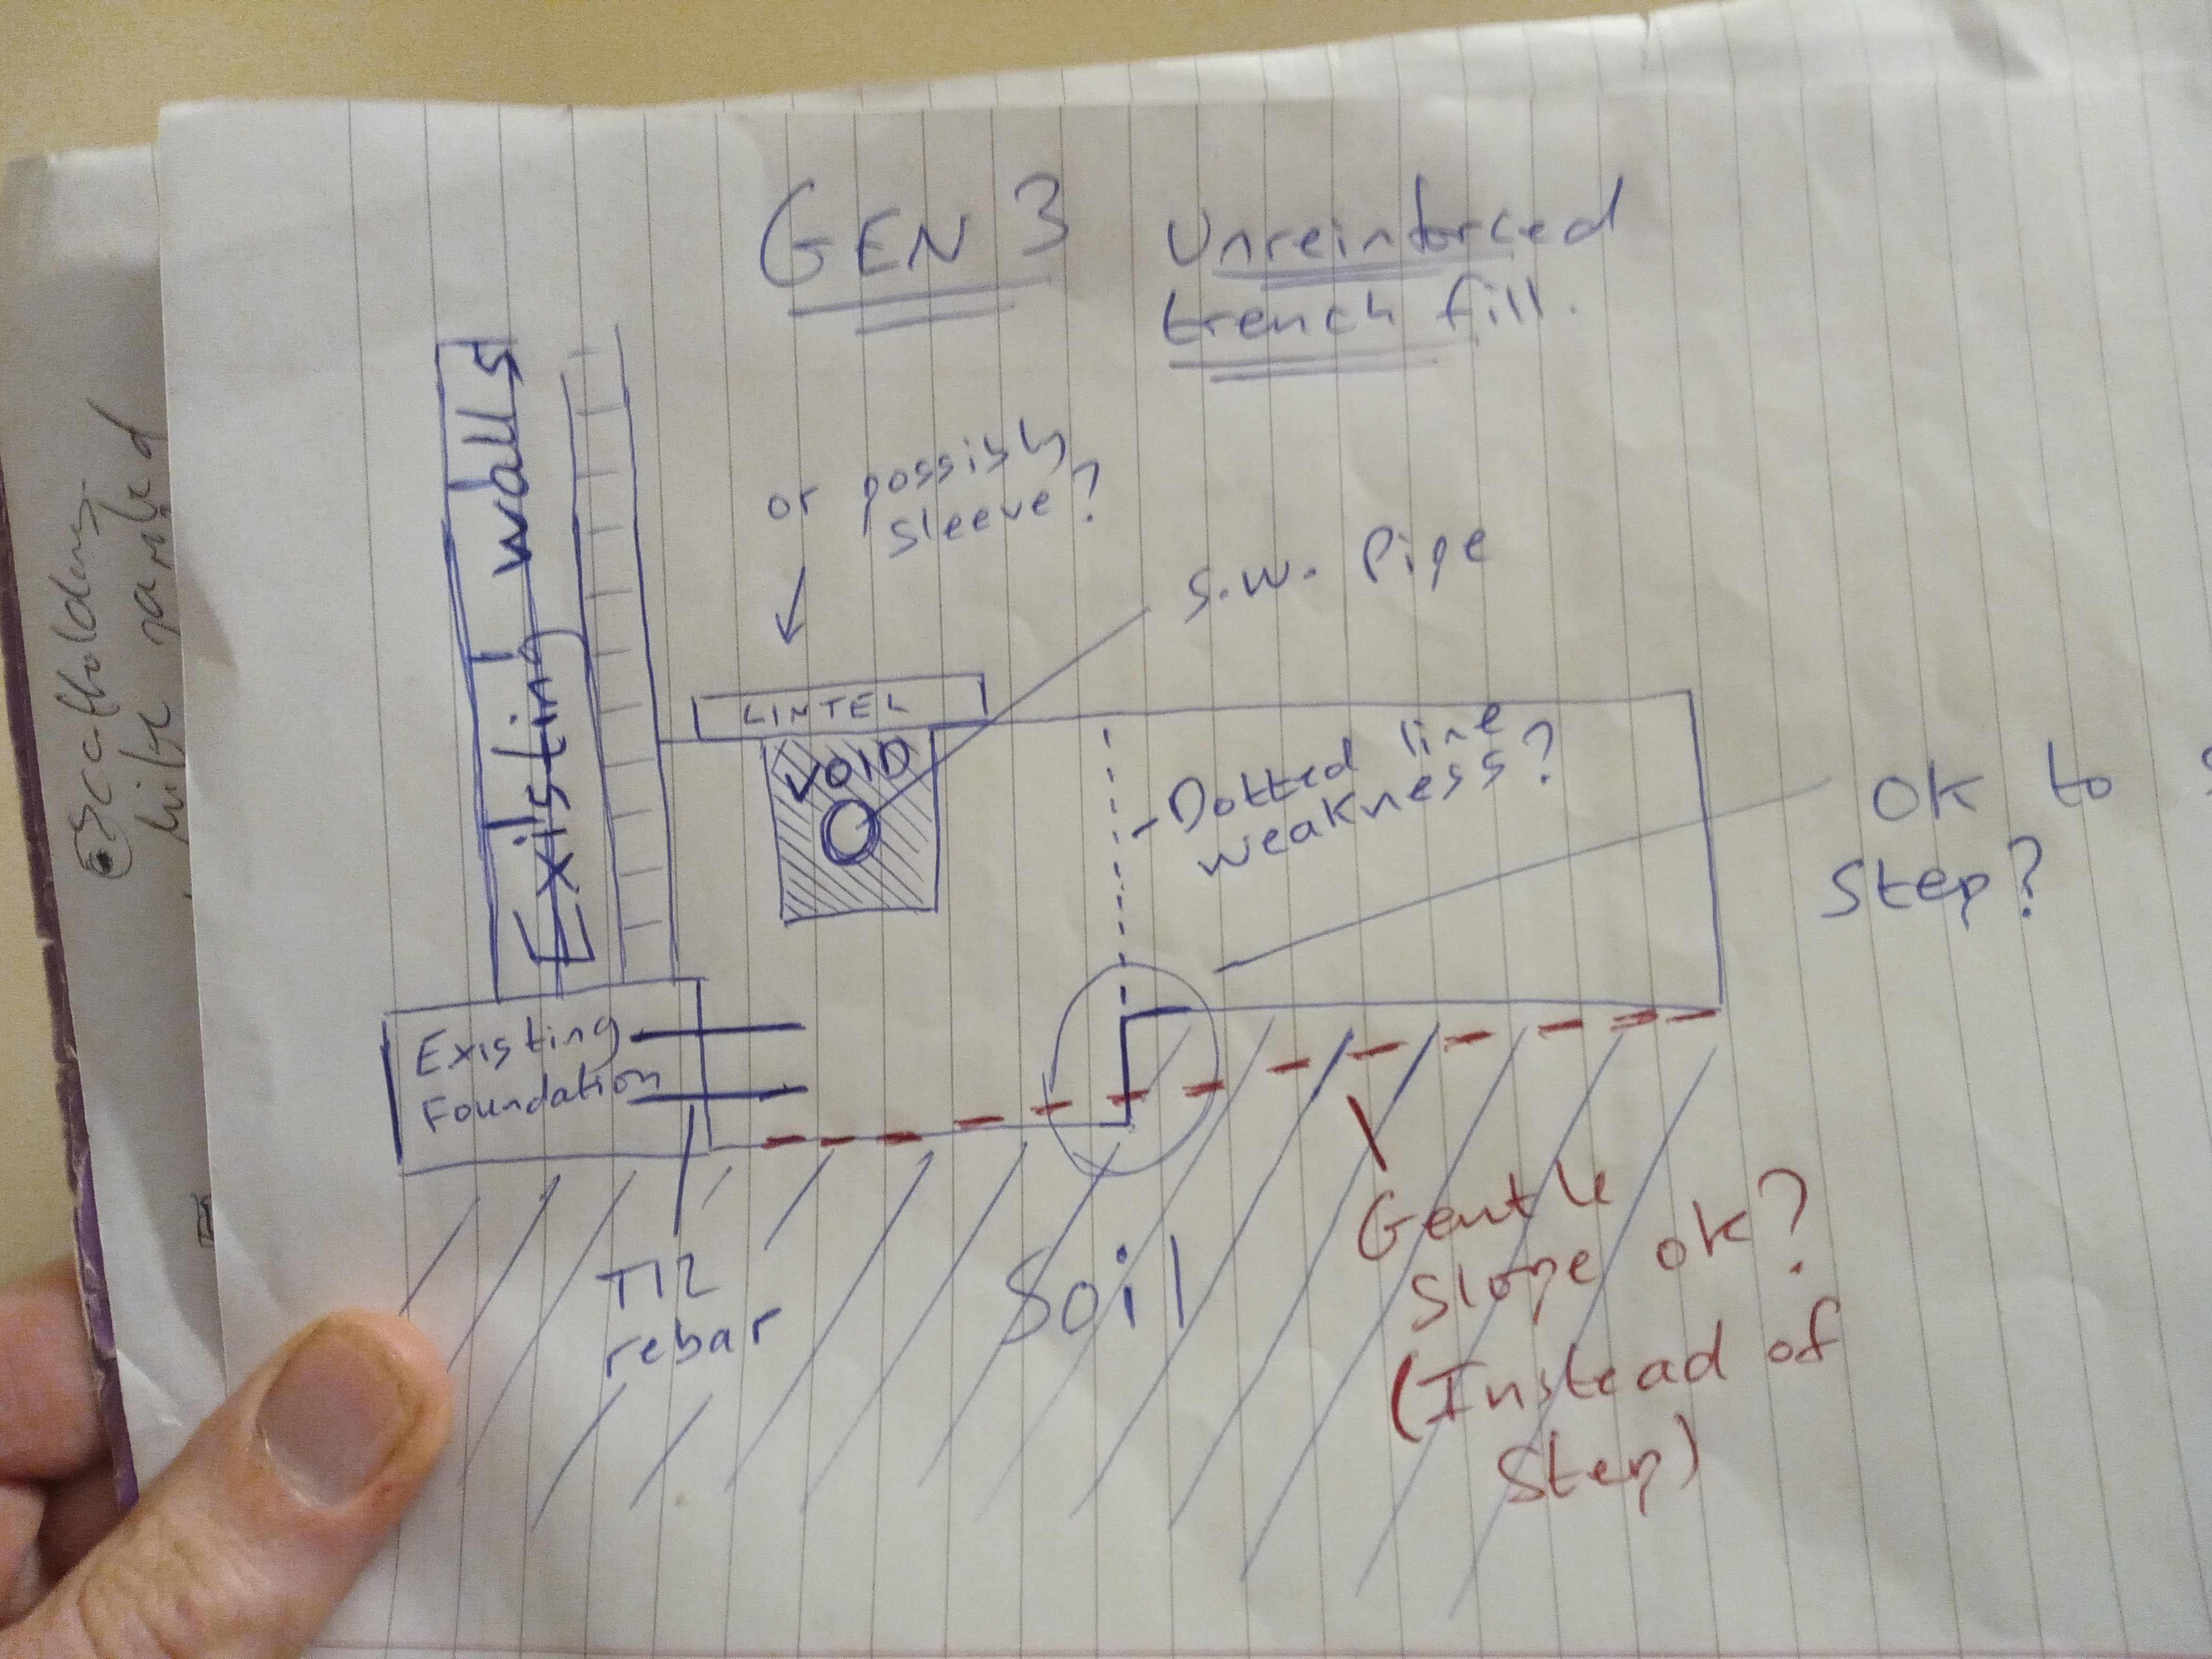 GEN 3 Unreinforced
trench fill.
or possibly
sleeve?
S.W. Pipe
Existing walls
LINTEL
VOID
Dotted line
weakness?
OK to
Step?
Existing
Foundation
T12
rebar
Soil
Gentle
slope ok?
(Instead of
Step)
Scaffolding